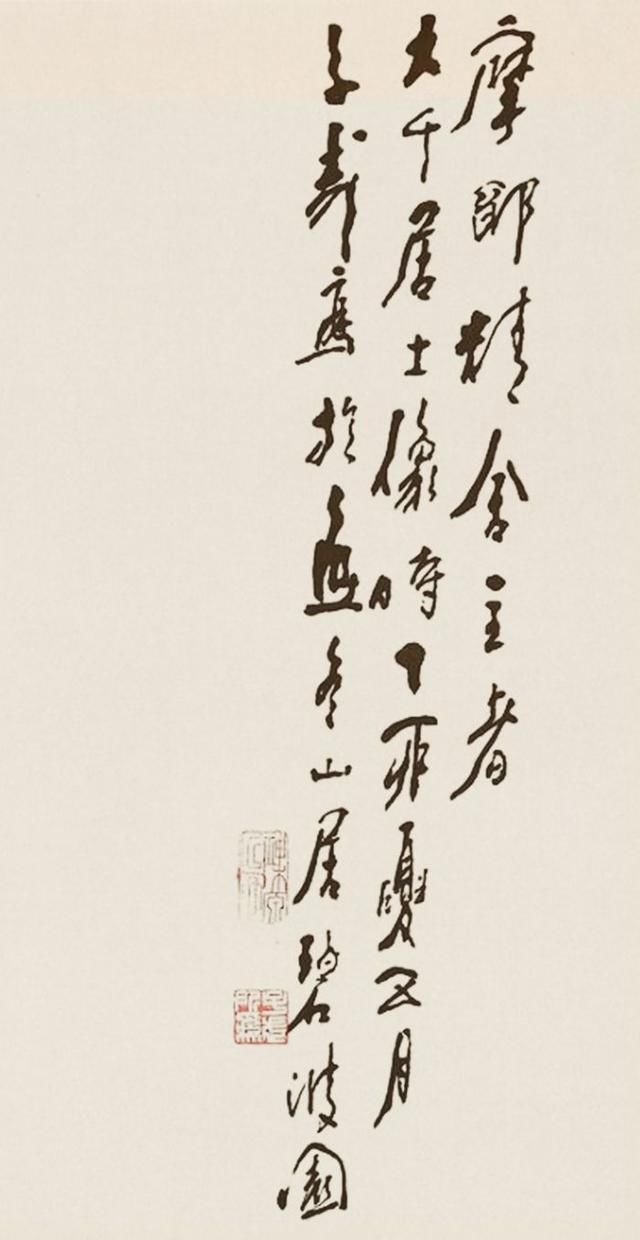 摩耶精舍主者
大千居士像時丁卯夏五月
子壽於無冬山居碧波園